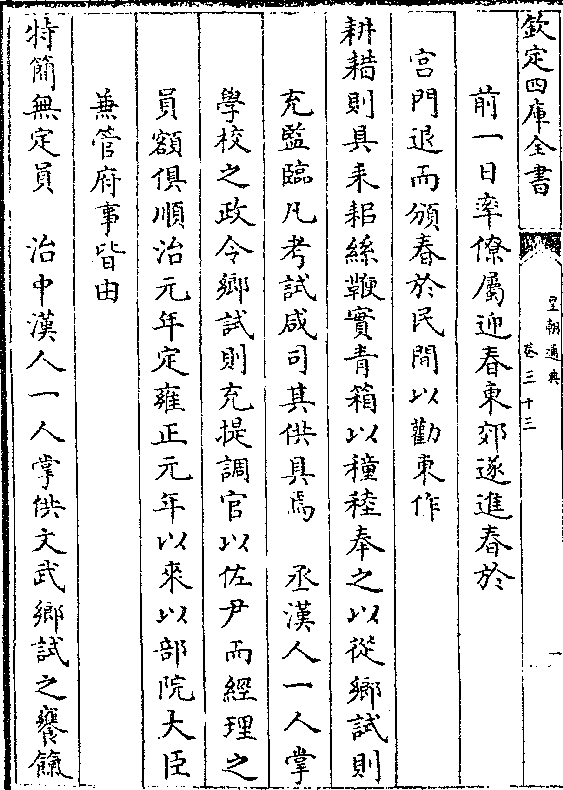 欽定四庫全書
皇朝通典
卷三十三
一
前一日率僚屬迎春東郊遂進春於
宮門退而頒春於民間以勸東作
耕耤則具耒耜絲鞭實青箱以穜稑奉之以從鄉試則
充監臨凡考試咸司其供具焉　丞漢人一人掌
學校之政令鄉試則充提調官以佐尹而經理之
員額俱順治元年定雍正元年以來以部院大臣
兼管府事皆由
特簡無定員　治中漢人一人掌供文武鄉試之饔餼